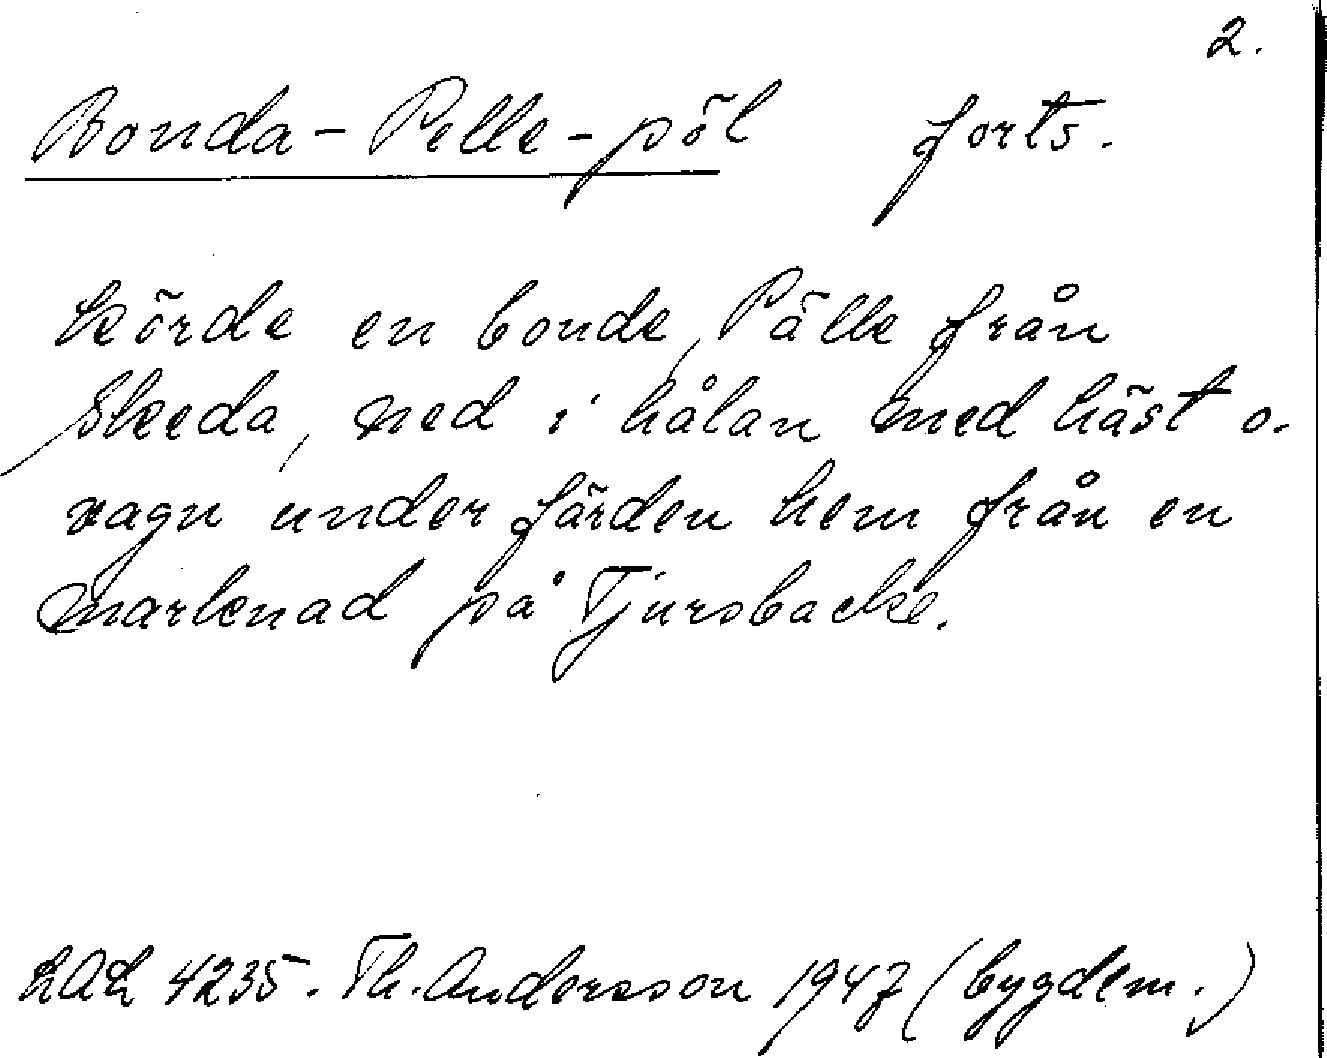 2.
Bonda-Pelle-pöl forts.
körde en bonde, Pälle från
Skeda, ned i hålan med häst o.
vagn under färden hem från en
marknad på Tjursbacke.
LAL 4235. Th. Andersson 1947 (bygdem.)